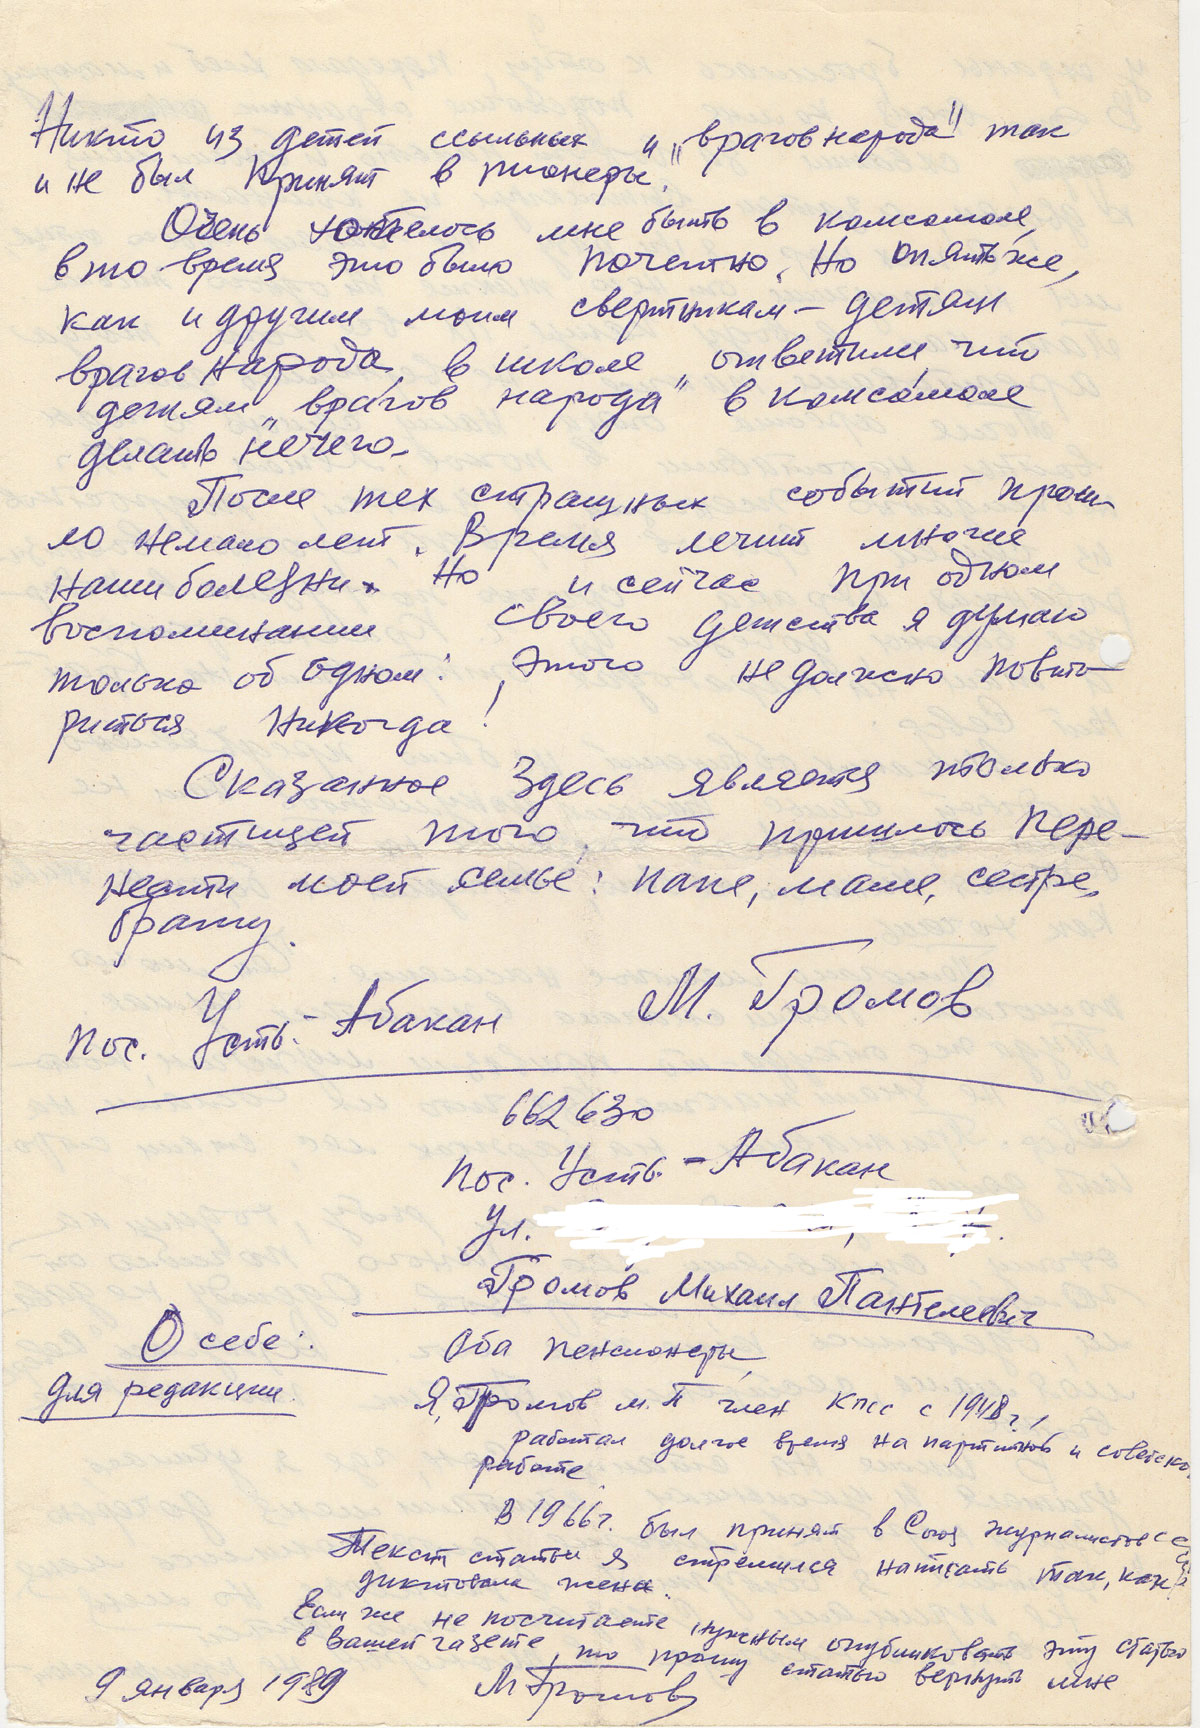 Никто из детей ссыльных и „врагов народа" так
и не был принят в пионеры.
Очень хотелось мне быть в комсомоле,
в то время это было почетно. Но опять же,
как и другим моим сверстникам – детям
врагов народа, в школе ответили что
детям „врагов народа" в комсомоле
делать нечего.
После тех страшных событий прош-
ло немало лет. Время лечит многие
наши болезни. Но и сейчас при одном
воспоминании своего детства я думаю
только об одном: этого не должно повто-
риться никогда!
Сказанное здесь является только
частицей того, что пришлось пере-
нести моей семье: папе, маме, сестре,
брату.
пос. Усть-Абакан М. Громов
662630
пос. Усть-Абакан
ул.
Громов Михаил Пантелеевич
О себе: Оба пенсионеры,
для редакции. Я, Громов М.П член КПСС с 1948 г.,
работал долгое время на партийной и советской
работе.
В 1966 г. был принят в Союз журналистов СССР
Текст статьи я стремился написать так, как
диктовала жена.
Если же не посчитаете нужным опубликовать эту статью
в Вашей газете, то прошу статью вернуть мне
9 января 1989 МГромов